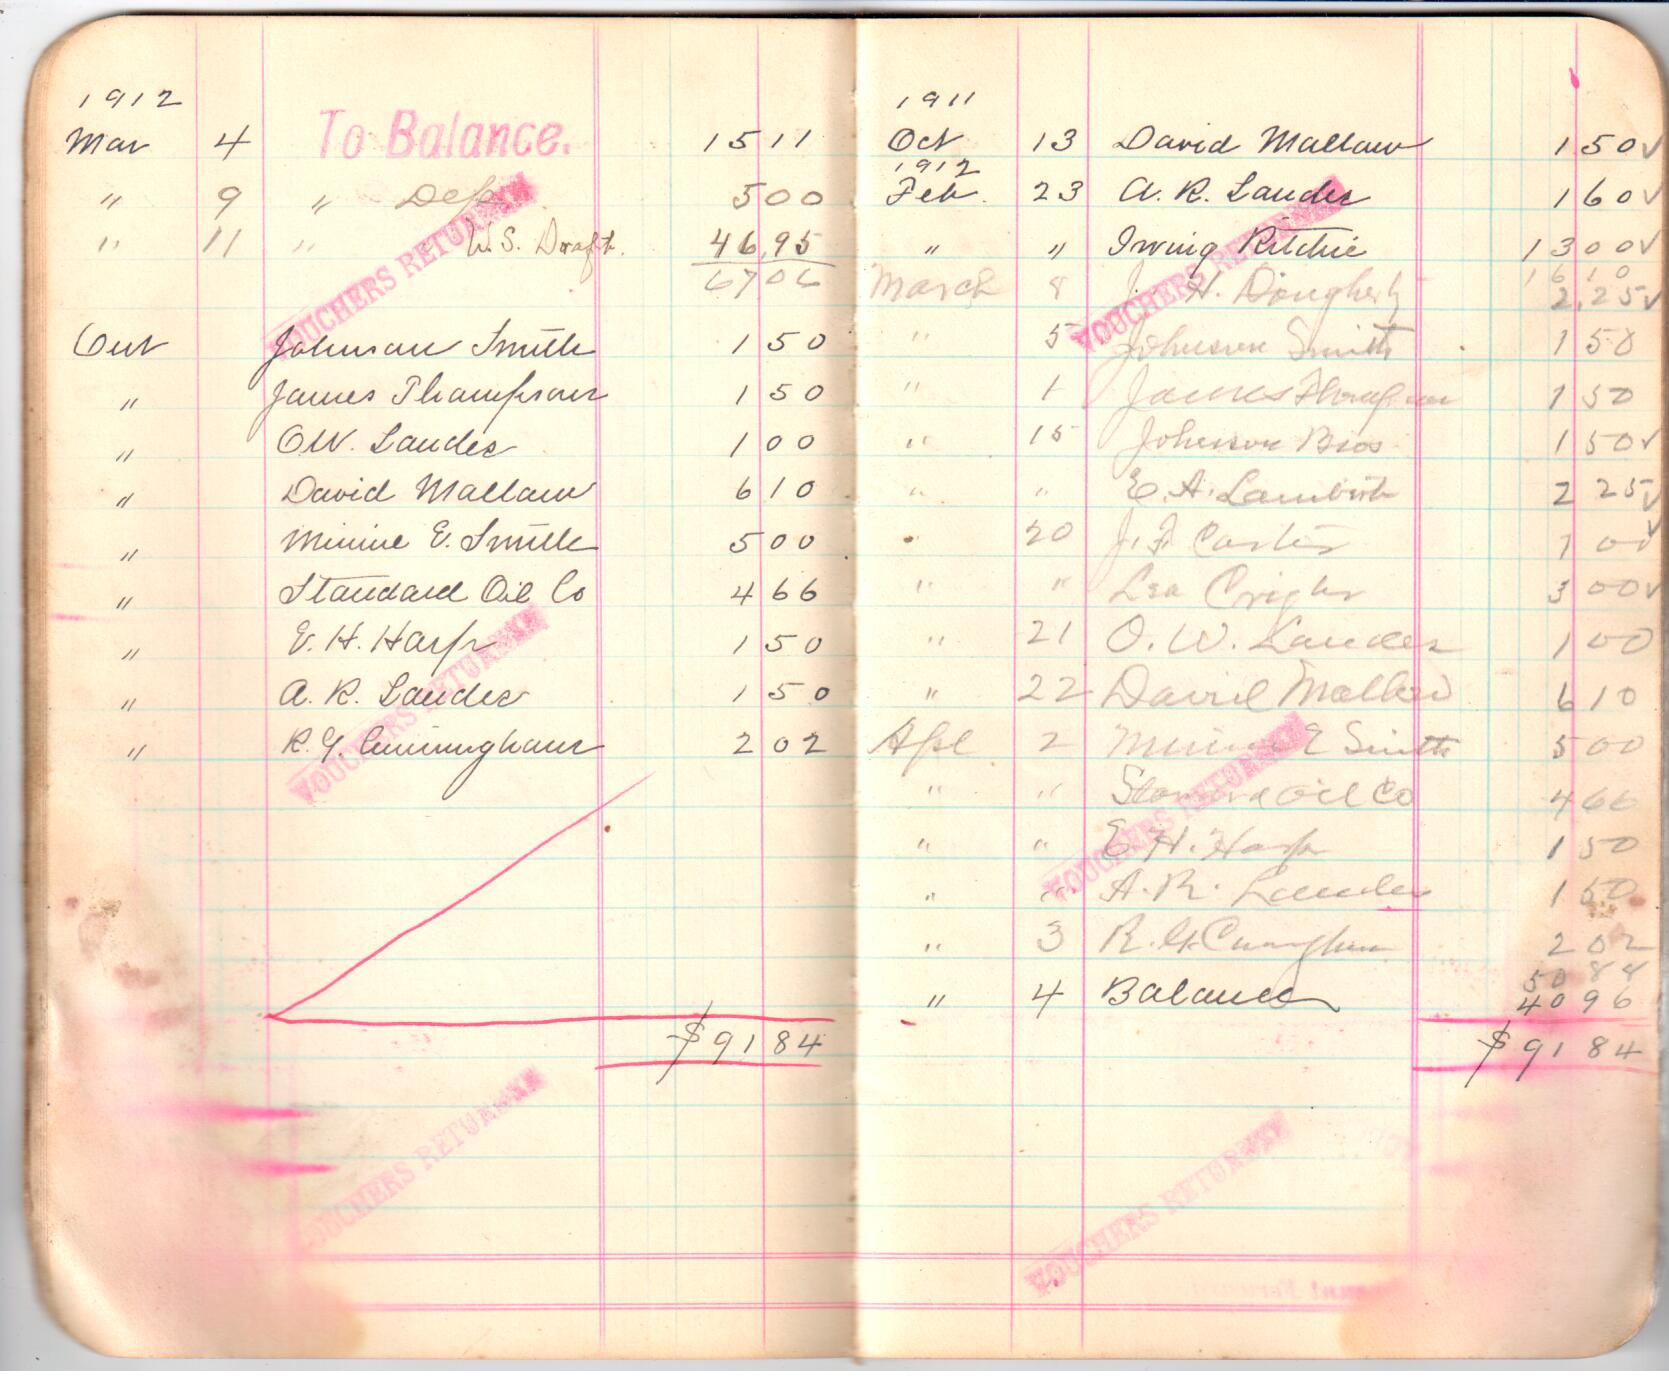 1912
Mar 4 To Balance. 15 11
" 9 " Dep. 5 00
" 11 " U.S. Draft. 46,95
67 06
Out Johnson Smith 1 50
" James Thompson 1 50
" O.W. Lander 1 00
" David Mallow 6 10
" Minnie E. Smith 5 00
" Standard Oil Co 4 66
" E. H. Harp 1 50
" A. R. Lander 1 50
" R. G. Cunningham 2 02
$91 84
VOUCHERS RETURNED
VOUCHERS RETURNED
VOUCHERS RETURNED
1911
Oct 13 David Mallow 1 50 ✓
1912
Feb. 23 A. R. Lander 1 60 ✓
" " Irving Ritchie 13 00 ✓
16 10
March 8 J. H. Dougherty 2,25 ✓
" 5 Johnson Smith 1 50
" 1 James Thompson 1 50
" 15 Johnson Bros. 1 50 ✓
" " E. A. 2 25 ✓
" 20 J. F. Carter 1 00 ✓
" " Lea 3 00 ✓
" 21 O. W. Lander 1 00
" 22 David Mallow 6 10
Apl. 2 Minnie E Smith 5 00
" " Standard Oil Co 4 66
" " E. H. Harp 1 50
" " A. R. Lander 1 50
" 3 R. G. Cunningham 2 02
50 88
" 4 Balance 40 96
$91 84
VOUCHERS RETURNED
VOUCHERS RETURNED
VOUCHERS RETURNED